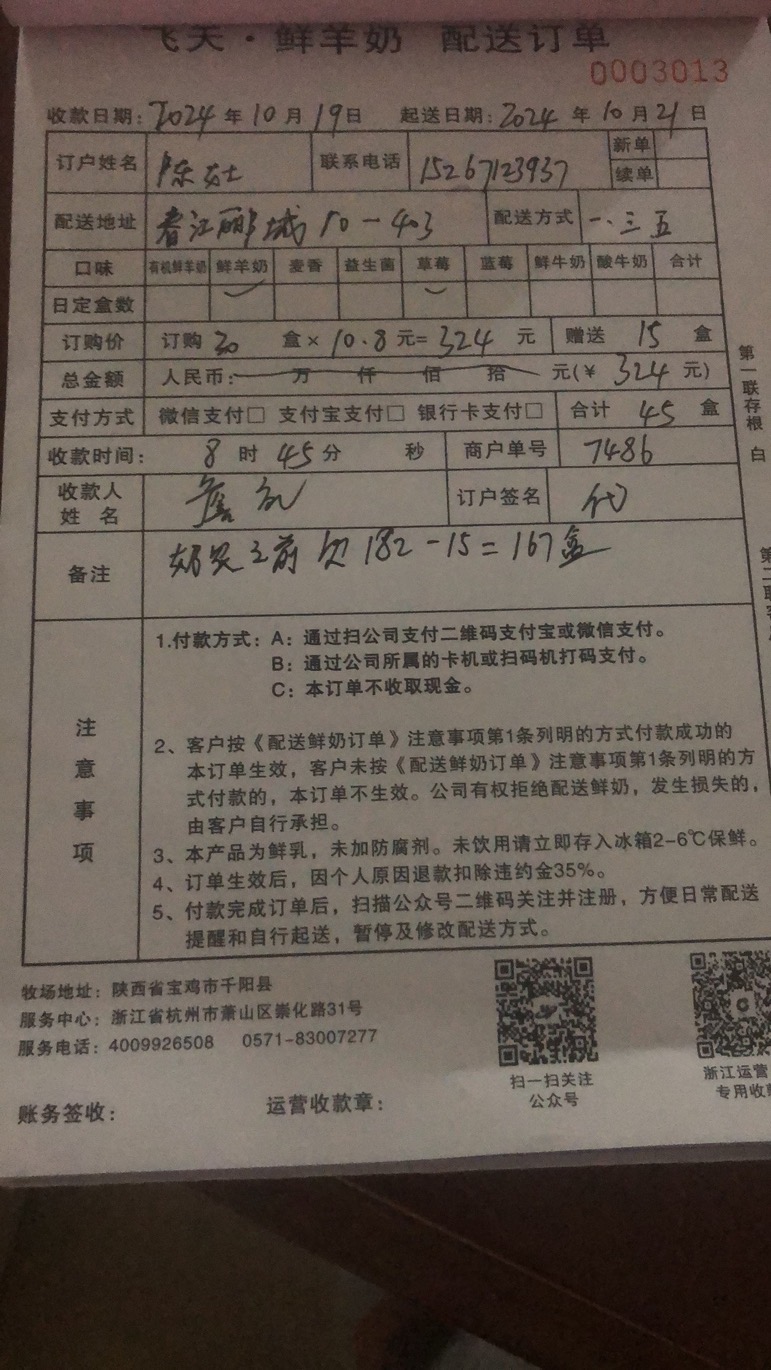 飞天·鲜羊奶 配送订单
0003013
收款日期：2024年10月19日 起送日期：2024年10月21日
订户姓名 陈女士 联系电话 15267123937 新单
续单
配送地址 春江郦城10-403 配送方式 一、三五
口味 有机鲜羊奶 鲜羊奶 麦香 益生菌 草莓 蓝莓 鲜牛奶 酸牛奶 合计
日定盒数 ✓ ✓
订购价 订购30盒×10.8元=324元 赠送15盒
总金额 人民币： 万 仟 佰 拾 元(¥324元)
支付方式 微信支付□ 支付宝支付□ 银行卡支付□ 合计45盒
收款时间： 8时45分 秒 商户单号 7486
收款人
姓 名 订户签名 代
备注 之前欠182-15=167盒
注意事项
1.付款方式：A：通过扫公司支付二维码支付宝或微信支付。
B：通过公司所属的卡机或扫码机打码支付。
C：本订单不收取现金。
2、客户按《配送鲜奶订单》注意事项第1条列明的方式付款成功的
本订单生效，客户未按《配送鲜奶订单》注意事项第1条列明的方
式付款的，本订单不生效。公司有权拒绝配送鲜奶，发生损失的，
由客户自行承担。
3、本产品为鲜乳，未加防腐剂。未饮用请立即存入冰箱2-6℃保鲜。
4、订单生效后，因个人原因退款扣除违约金35%。
5、付款完成订单后，扫描公众号二维码关注并注册，方便日常配送
提醒和自行起送，暂停及修改配送方式。
第一联存根 白
第二联客
牧场地址：陕西省宝鸡市千阳县
服务中心：浙江省杭州市萧山区崇化路31号
服务电话：4009926508 0571-83007277
扫一扫关注
公众号
浙江运营
专用收款
账务签收： 运营收款章：